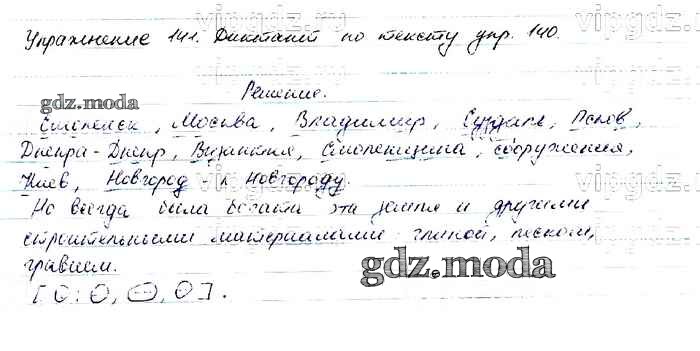 vipgdz.
vipgdz.
Упражнение 141. Диктант по тексту упр. 140.
Решение.
gdz.moda
Смоленск, Москва, Владимир, Суздаль, Псков,
Днепра - Днепр, Византия, Смоленщина, сооружения,
Киев, Новгород к Новгороду.
vipgdz.
Но всегда была богата эта земля и другими
строительными материалами: глиной, песком,
гравием.
gdz.moda
[О: О, О, О].
vipgdz.